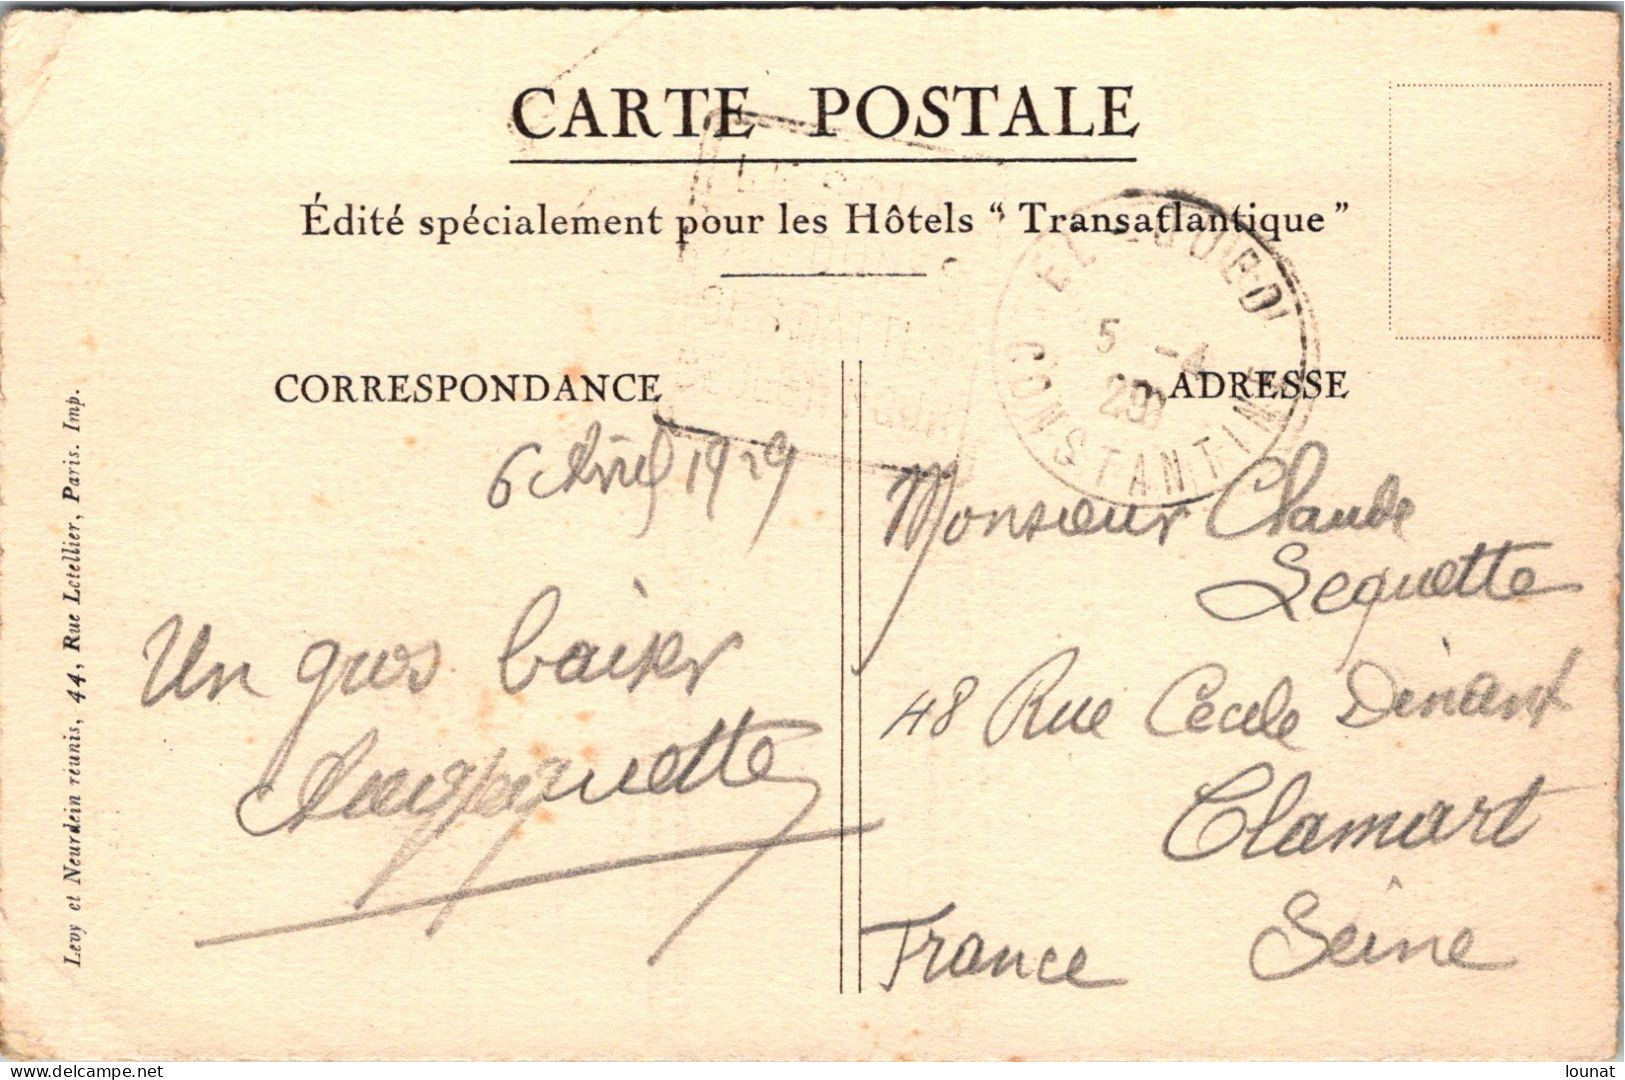 CARTE POSTALE
Édité spécialement pour les Hôtels “ Transatlantique ”
EL-OUED
5 -4
29
CONSTANTINE
CORRESPONDANCE
ADRESSE
6 Avril 1929
Un gros baiser
Monsieur Claude
Lequette
48 Rue Cécile Dinant
Clamart
Seine
France
Levy et Neurdein réunis, 44, Rue Letellier, Paris. Imp.
delcampe.net
lounat